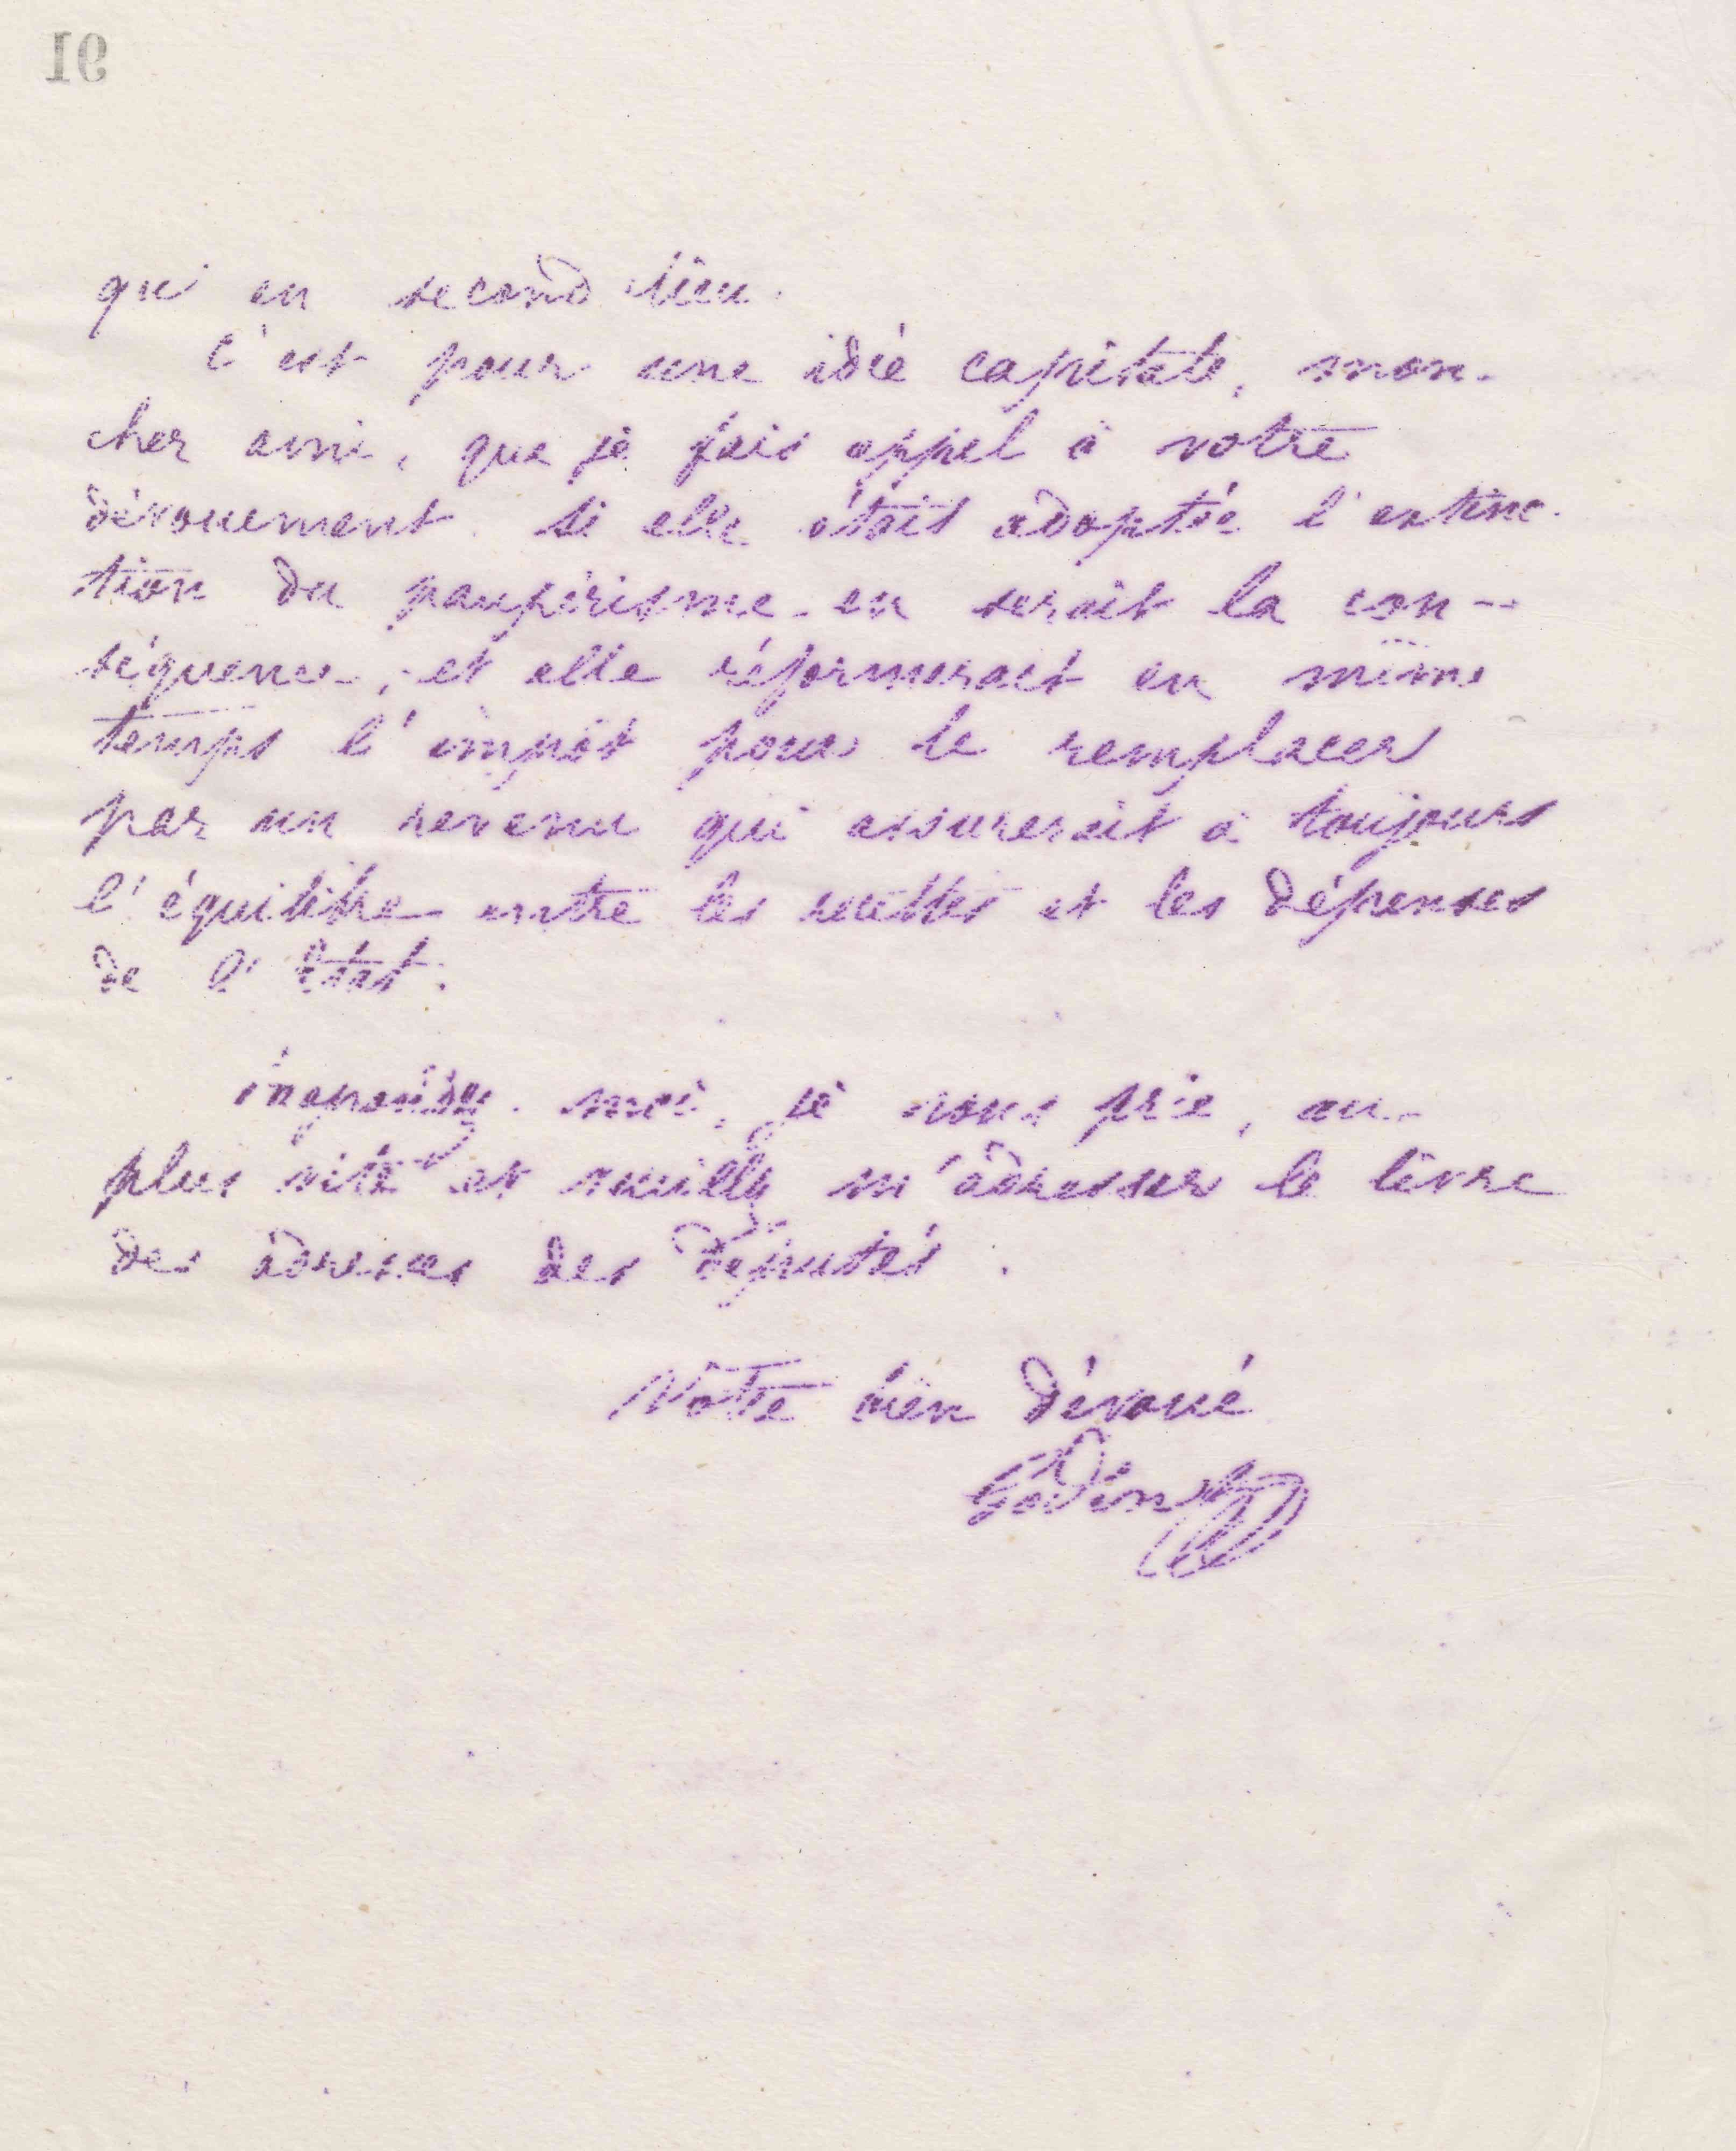 16
qu'en second lieu.
C'est pour une idée capitale, mon
cher ami, que je fais appel à votre
dévouement. Si elle était adoptée l'extinc-
tion du paupérisme en serait la con-
séquence, et elle réformerait en même
temps l'impôt pour le remplacer
par un revenu qui assurerait à toujours
l'équilibre entre les recettes et les dépenses
de l'Etat.
moi, je vous prie, au
plus vite et veuillez m'adresser le livre
des adresses des députés.
Votre bien dévoué
Godin